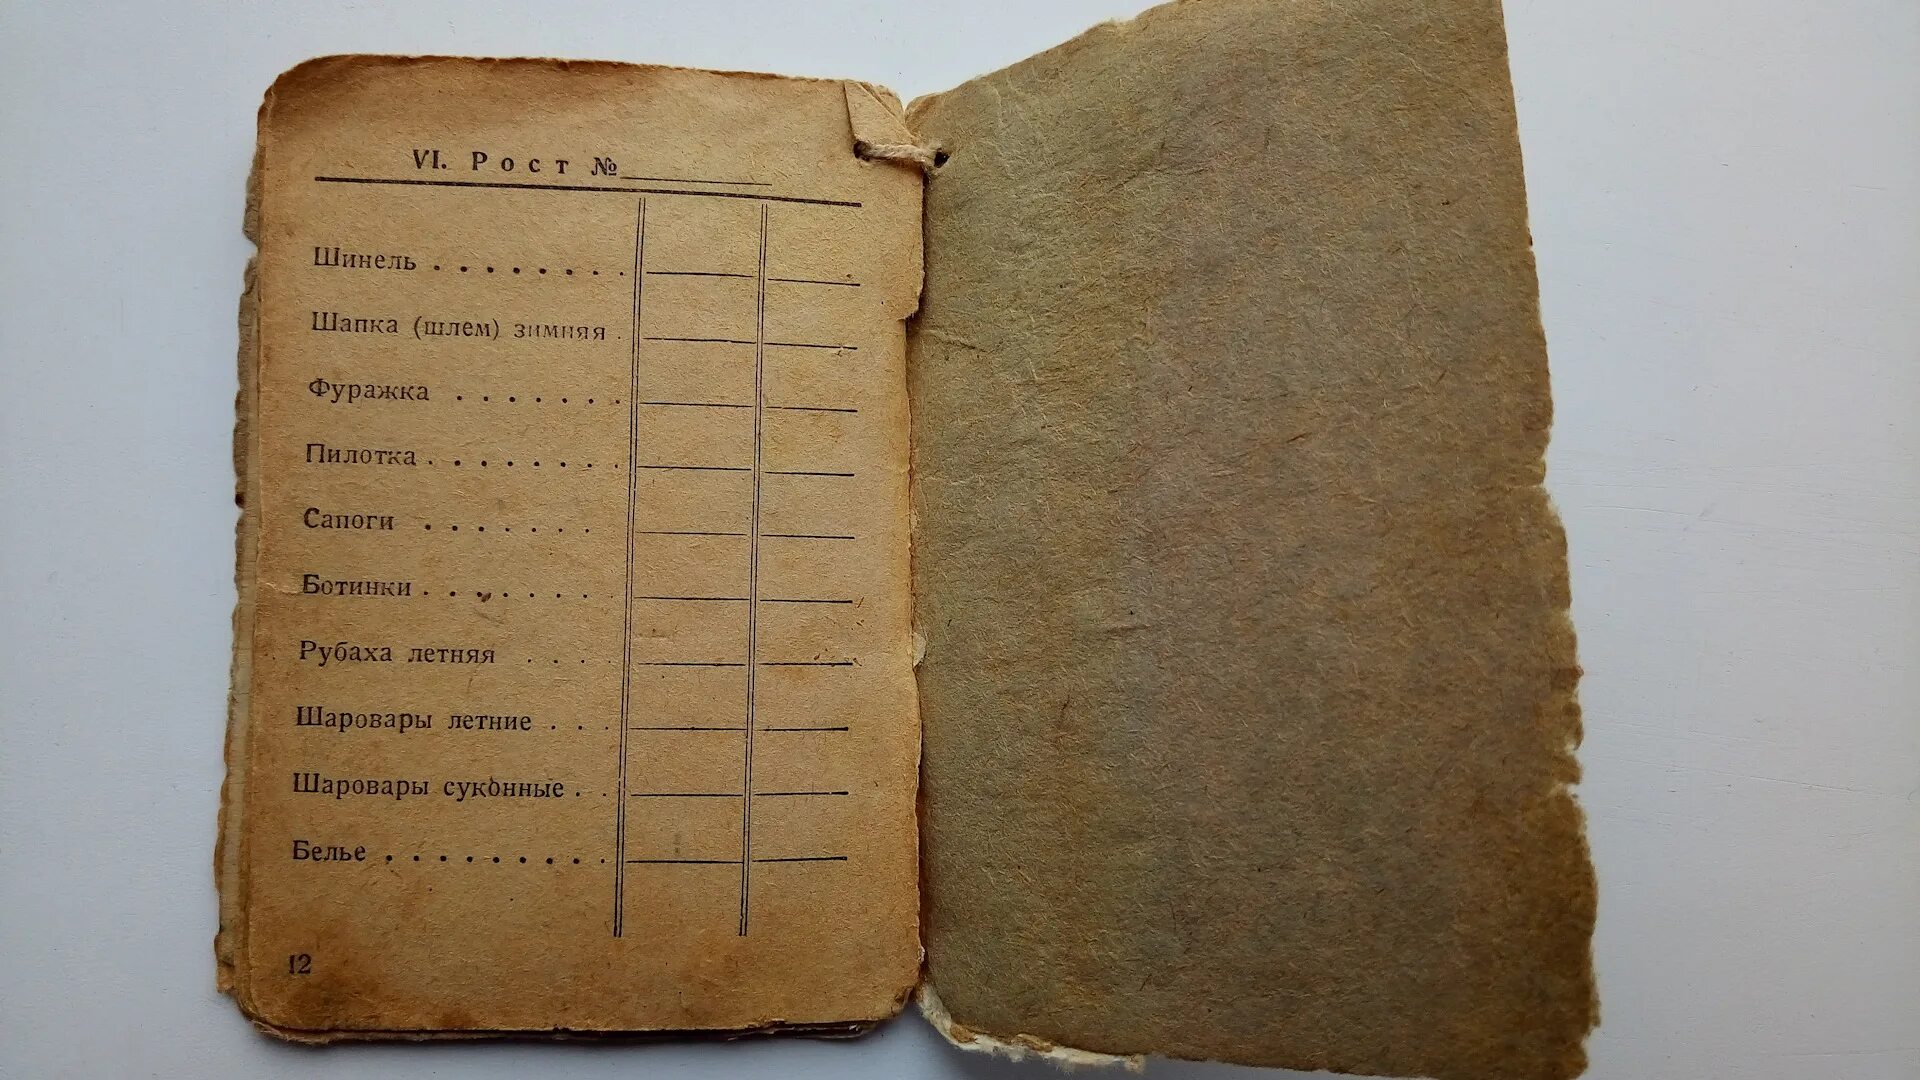 VI. Рост №
Шинель
Шапка (шлем) зимняя
Фуражка
Пилотка
Сапоги
Ботинки
Рубаха летняя
Шаровары летние
Шаровары суконные
Белье
12